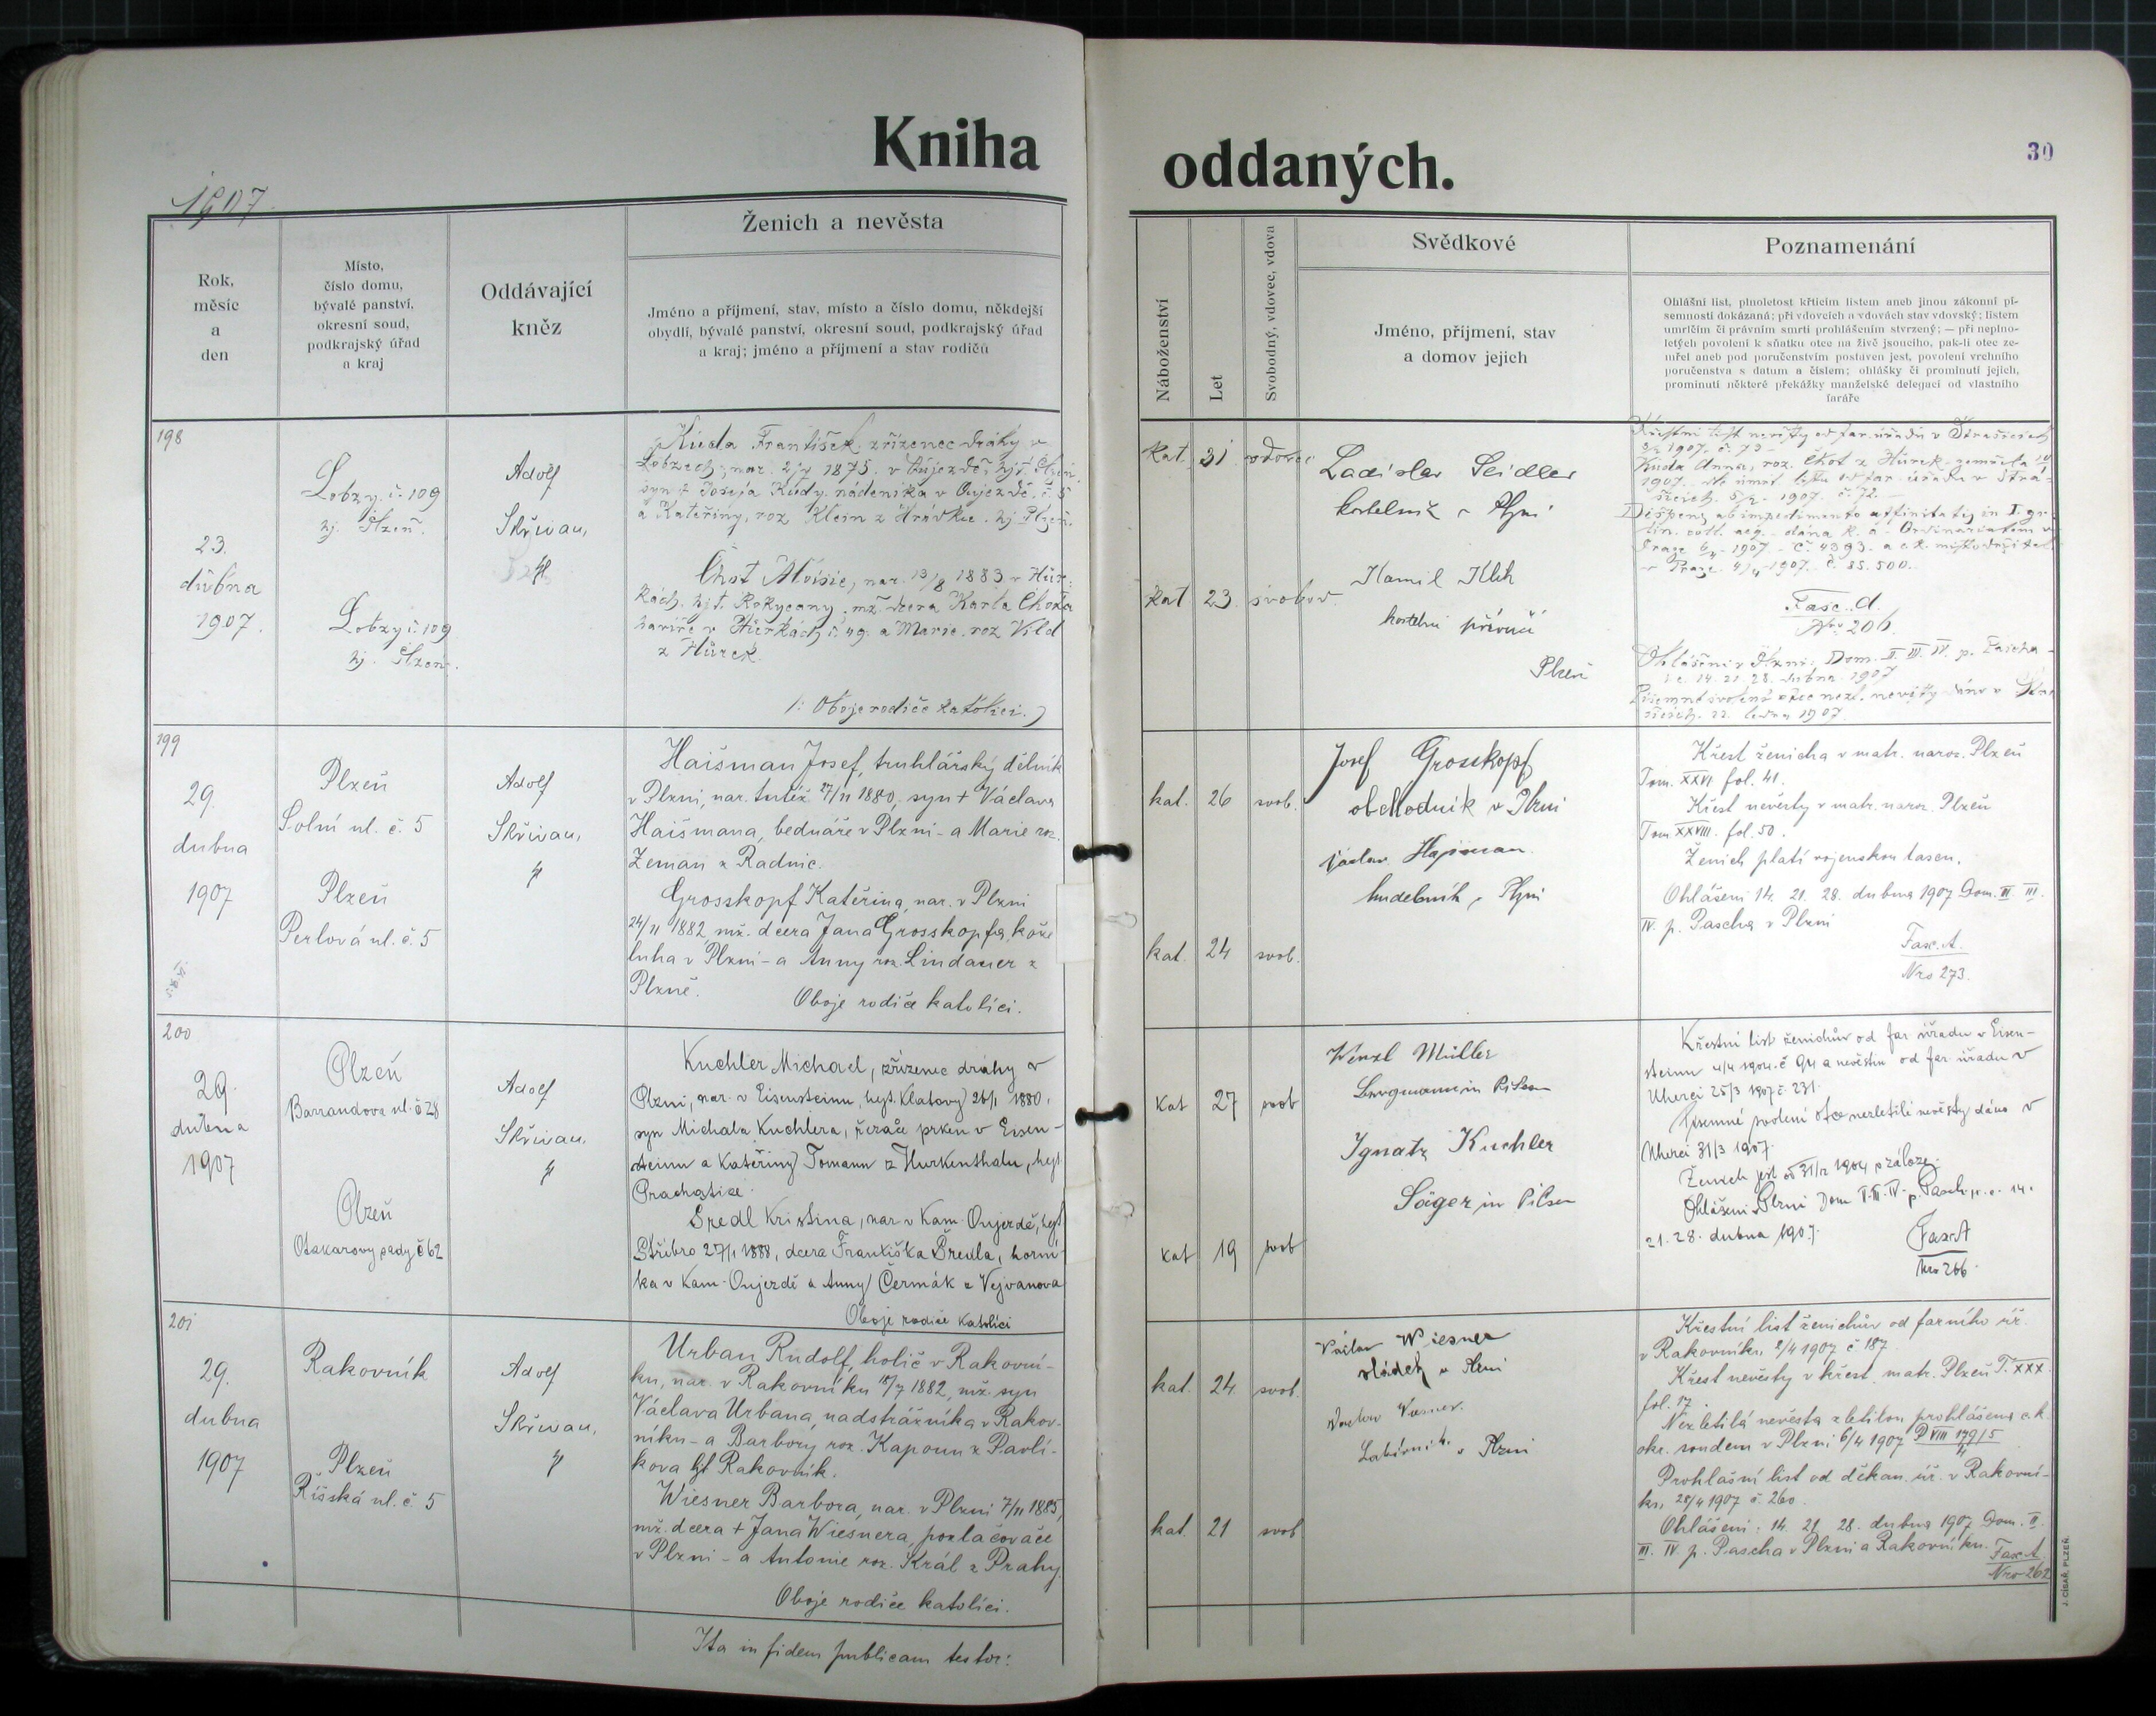 Kniha
oddaných.
30
1907
Rok,
měsíc
a
den
Místo,
číslo domu,
bývalé panství,
okresní soud,
podkrajský úřad
a kraj
Oddávající
kněz
Ženich a nevěsta
Jméno a příjmení, stav, místo a číslo domu, někdejší
obydlí, bývalé panství, okresní soud, podkrajský úřad
a kraj; jméno a příjmení a stav rodičů
Náboženství
Let
Svobodný, vdovec, vdova
Svědkové
Jméno, příjmení, stav
a domov jejich
Poznamenání
Ohlášní list, plnoletost křticím listem aneb jinou zákonní pí-
semností dokázaná; při vdovcích a vdovách stav vdovský; listem
umrlčím či právním smrti prohlášením stvrzený; — při neplno-
letých povolení k sňatku otce na živě jsoucího, pak-li otec ze-
mřel aneb pod poručenstvím postaven jest, povolení vrchního
poručenstva s datum a číslem; ohlášky či prominutí jejich,
prominutí některé překážky manželské delegací od vlastního
faráře
198
23.
dubna
1907.
Lobzy č. 109
hj. Plzeň.
Lobzy č. 109
hj. Plzeň.
Adolf
Skřivan,
Kuda František zřízenec dráhy v
Lobzech, nar. 2/4 1875. v Oujezdě, hjt. Plzeň
syn † Josefa Kudy nádeníka v Oujezdě č. 5
a Kateřiny, roz Klein z Hrádku. hj Plzeň.
Chot Aloisie, nar. 13/8 1883 v Hůr-
kách. hjt. Rokycany, mž. dcera Karla Chota
havíře v Hůrkách č. 49. a Marie. roz Vild
z Hůrek.
/: Oboje rodiče katolíci. )
kat 31 vdovec
kat 23 svobod.
Ladislav Seidler
kostelník v Plzni
Kamil Klih
Plzeň
Křestní list nevěsty od far. úřadu v Strašicích
1907. č. 73
Kuda Anna, roz. Chot z Hůrek zemřela
1907. dle úmrt. listu od far. úřadu v Stra-
šicích. 1907. č. 72.
Dispens ab impedimento affinitatis in I. gr.
Praze 1907 č. 4393. a c.k. místodržitel.
v Praze 1907. č. 85.500.
Fasc. A.
Nro 206.
Ohlášení v Plzni: Dom. II. III. IV. p. Pascha
i.e. 14. 21. 28. dubna 1907
Písemné svolení otce nezl. nevěsty dáno v Stra-
šicích. 22. ledna 1907.
199
29.
dubna
1907
Plzeň
Solní ul. č. 5
Plzeň
Perlová ul. č. 5
Adolf
Skřivan,
Haišman Josef, truhlářský dělník
v Plzni, nar. tutéž 27/11 1880, syn † Václava
Haišmana, bednáře v Plzni - a Marie roz.
Zeman z Radnic.
Grosskopf Kateřina, nar. v Plzni
24/11 1882, mž. dcera Jana Grosskopfa, kože
luha v Plzni - a Anny roz. Lindauer z
Plzně.
Oboje rodiče katolíci.
kat. 26 svob.
kat. 24 svob.
Josef Grosskopf
obchodník v Plzni
Václav Hajšman.
hudebník v Plzni
Křest ženicha v matr. naroz. Plzeň
Tom. XXVI fol. 41.
Křest nevěsty v matr. naroz. Plzeň
Tom XXVIII. fol. 50.
Ženich platí vojenskou taxu.
Ohlášení 14. 21. 28. dubna 1907 Dom. II. III.
IV. p. Pascha v Plzni
Fasc. A.
Nro 273.
200
29.
dubna
1907
Plzeň
Barrandova ul. č 28
Plzeň
Otakarovy sady č 62
Adolf
Skřivan.
Kuchler Michael, zřízenec dráhy v
Plzni, nar. v Eisensteinu, hejt. Klatovy 26/1 1880,
syn Michala Kuchlera, řezače prken v Eisen-
steinu a Kateřiny Tomann z Hurkenthalu, hejt
Prachatice.
Šredl Kristina, nar v Kam. Oujezdě, hejt
Stříbro 27/1 1888, dcera Františka Šredla, horní-
ka v Kam. Oujezdě a Anny Čermák z Vejvanova
Oboje rodiče katolíci
kat 27 svob
kat 19 svob
Wenzl Müller
Bergmann in Pilsen
Ignatz Kuchler
Säger in Pilsen
Křestní list ženichův od far úřadu v Eisen-
steinu 4/4 1904 č 94 a nevěstin od far. úřadu v
Uherci 25/3 1907 č. 231.
Písemné svolení otce nezletilé nevěsty dáno v
Uherci 31/3 1907.
Ženich jest od 31/12 1904 v záloze.
Ohlášení v Plzni Dom II. III. IV. p. Pasch. i. e. 14.
21. 28. dubna 1907.
Fasc. A
Nro 266.
201
29.
dubna
1907
Rakovník
Plzeň
Říšská ul. č 5
Adolf
Skřivan,
Urban Rudolf, holič v Rakovní-
ku, nar. v Rakovníku 18/7 1882, mž. syn
Václava Urbana, nadstrážníka v Rakov-
níku - a Barbory roz. Kapoun z Pavlí-
kova hjt Rakovník.
Wiesner Barbora, nar. v Plzni 7/11 1885,
mž. dcera † Jana Wiesnera, pozlačovače
v Plzni - a Antonie roz. Král z Prahy.
Oboje rodiče katolíci.
kat. 24 svob.
kat. 21 svob
Václav Wiesner
sládek v Plzni
v Plzni
Křestní list ženichův od farního úř.
v Rakovníku 2/4 1907 č 187.
Křest nevěsty v křest. matr. Plzeň T. XXX.
fol. 17.
Nezletilá nevěsta zletilou prohlášena c.k.
okr. soudem v Plzni 6/4 1907 P VIII 179/5
Prohlašní list od děkan. úř. v Rakovní-
ku, 28/4 1907 č. 260.
Ohlášení: 14. 21. 28. dubna 1907 Dom. II.
III. IV. p. Pascha v Plzni a Rakovníku.
Fasc. A.
Nro 262
Ita in fidem publicam testor:
J. CÍSAŘ, PLZEŇ.